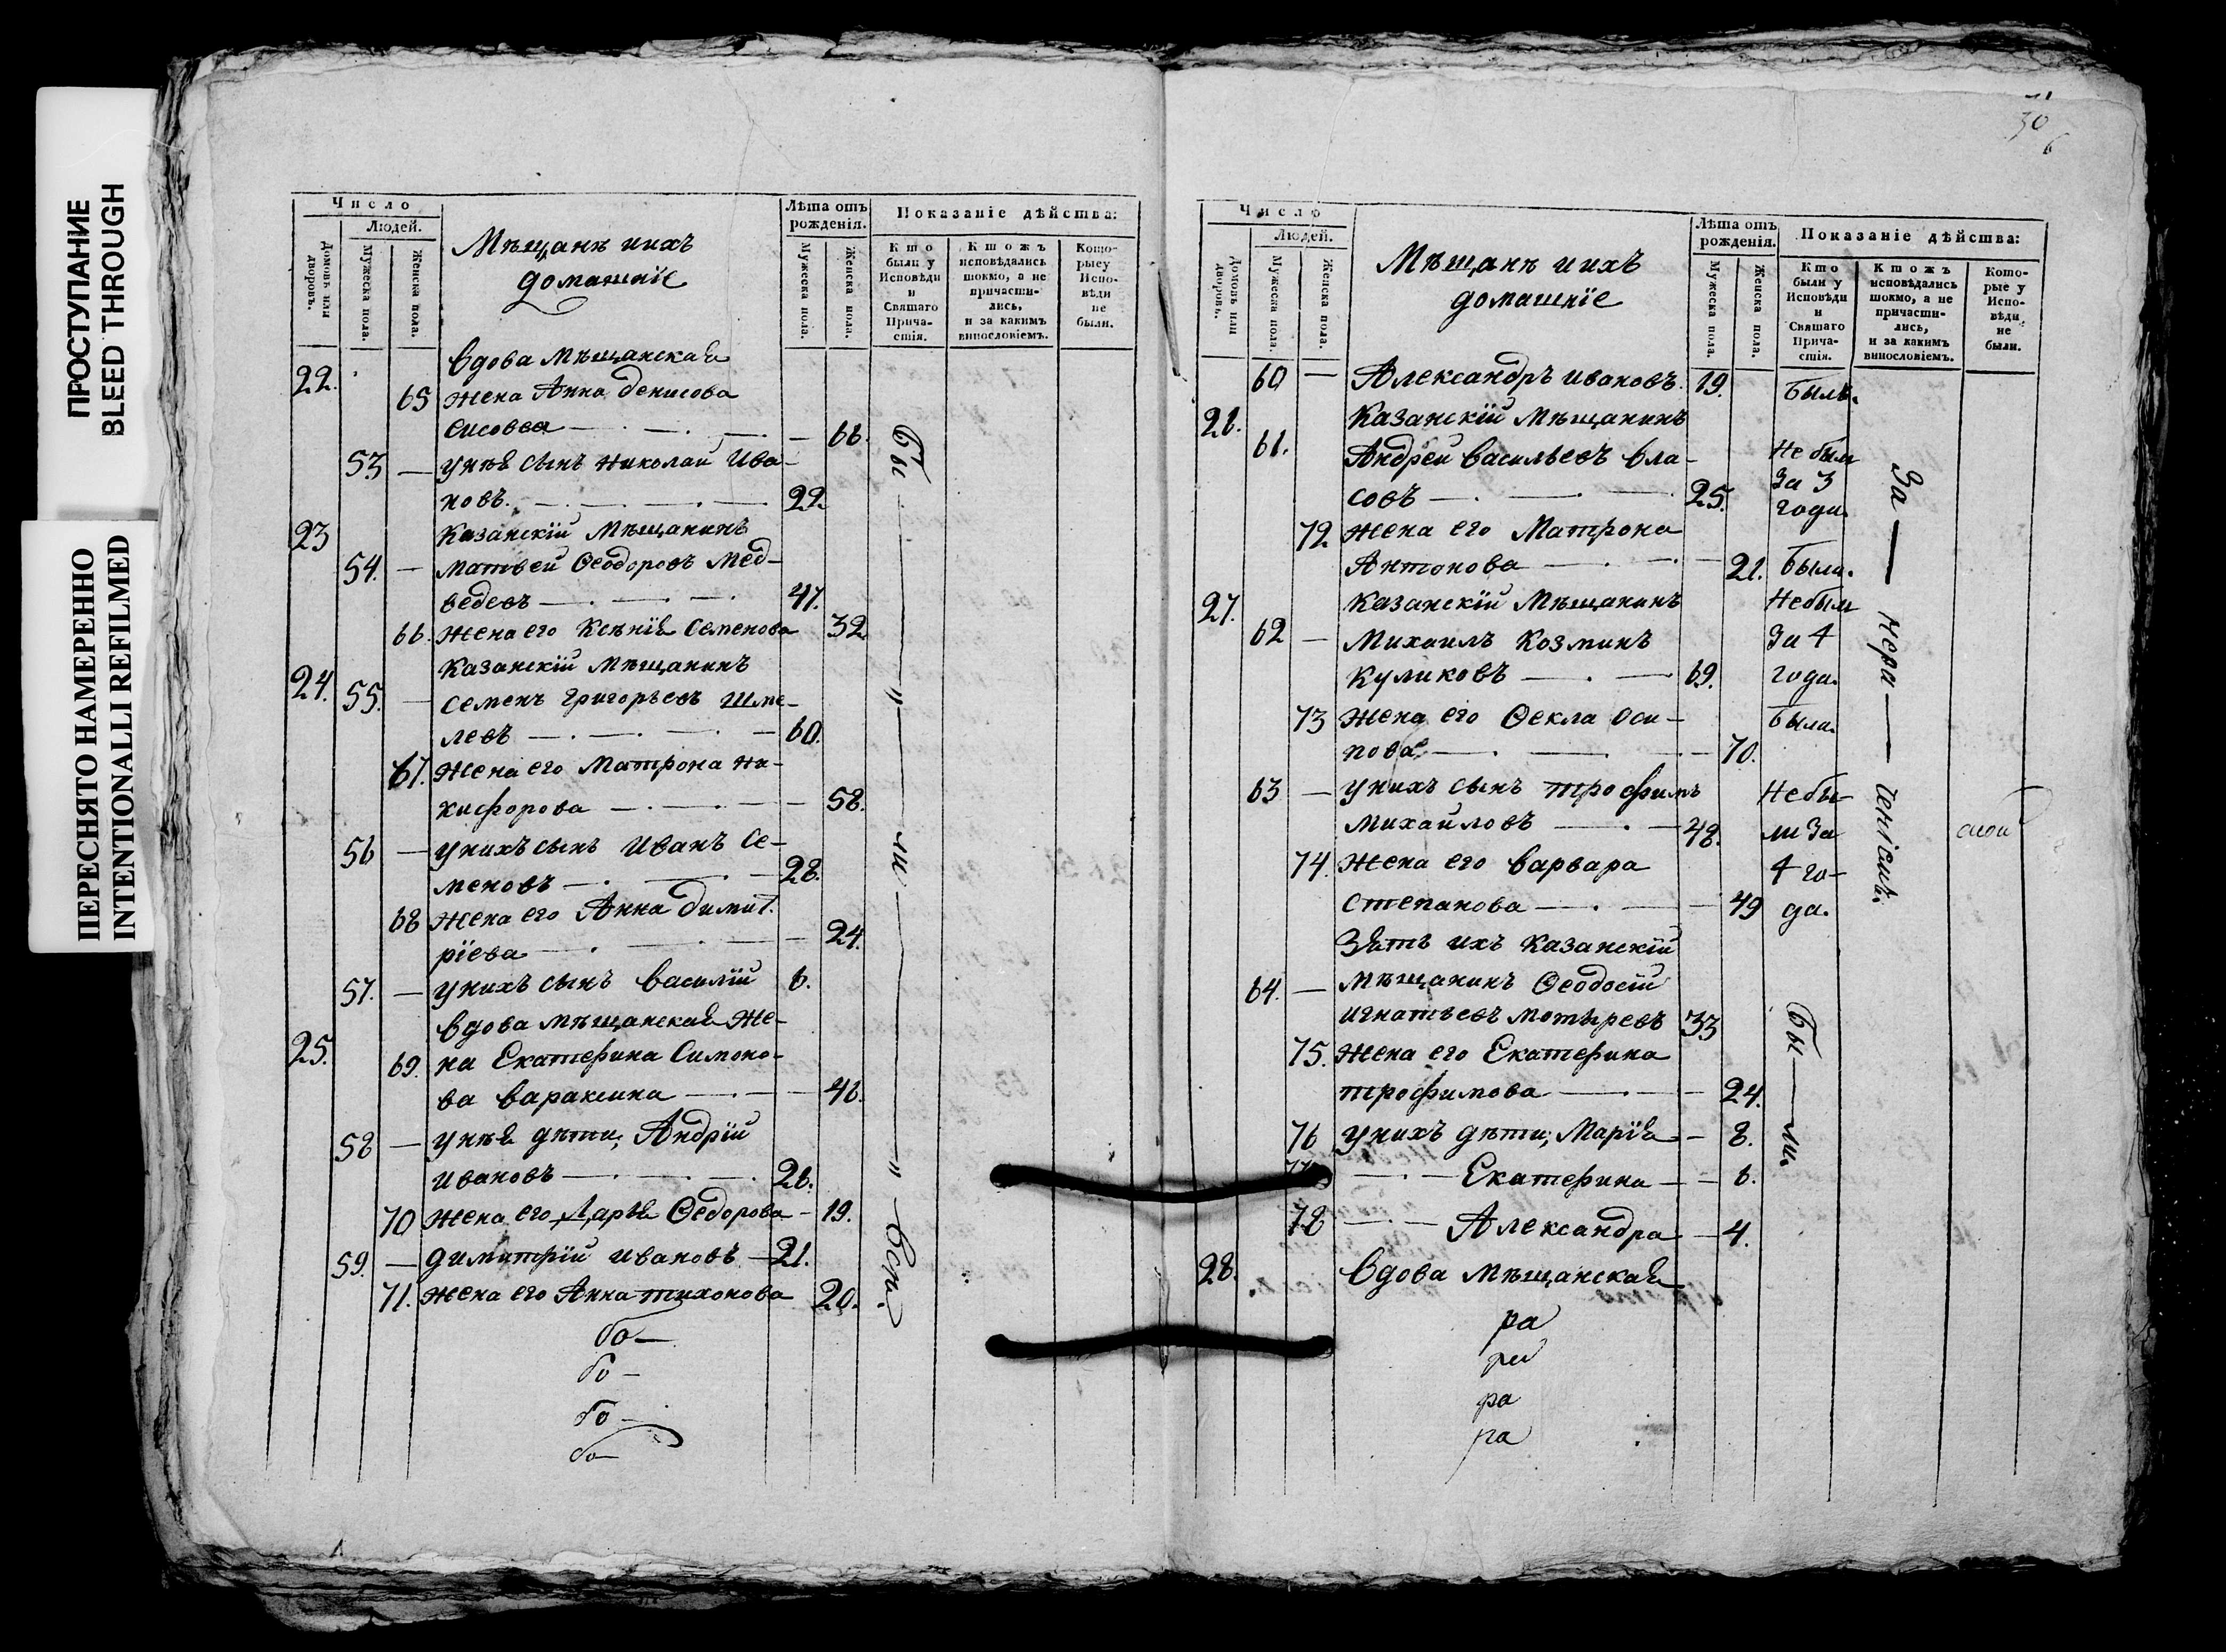 ПРОСТУПАНИЕ
BLEED THROUGH
ПЕРЕСНЯТО НАМЕРЕННО
INTENTIONALLI REFILMED
Число
Людей.
Домовъ или дворовъ.
Мужеска пола.
Женска пола.
Мѣщанъ иихъ
домашнїе
Лѣта отъ рожденія.
Мужеска пола.
Женска пола.
Показаніе дѣйства:
Кто были у Исповѣди и Святаго Причастія.
Ктожъ исповѣдались токмо, а не причастились, и за какимъ винословіемъ.
Которыеу Исповѣди не были.
22. вдова мѣщанская
65 жена Анна денисова
— 66.
53 — унея сынъ николай Ива-
новъ. — 22.
23 Казанскїй Мѣщанинъ
54. — матвей Ѳеодоровъ Мед-
ведевъ — 47.
66. жена его Ксѣнїя Семенова 32.
24. Казанскїй Мѣщанинъ
55. — семенъ григорьевъ Шме-
левъ — 60.
67. жена его Матрона ни-
кифорова — 58.
56 — унихъ сынъ Иванъ Се-
меновъ — 28.
68 жена его Анна димит.
рїева — 24.
57. — унихъ сынъ василїй 6.
25. вдова мѣщанская же-
69. на Екатерина Симоно-
ва вараксина — 46.
58 — унея дѣти, Андрїй
ивановъ — 26.
70 жена его дарья Ѳедорова — 19.
59. — димитрїй ивановъ — 21.
71. жена его Анна тихонова 20.
Бы — " — ли — " — вси.
бо —
бо —
бо —
бо —
30
6
Число
Людей.
Домовъ или дворовъ.
Мужеска пола.
Женска пола.
Мѣщанъ иихъ
домашнїе
Лѣта отъ рожденія.
Мужеска пола.
Женска пола.
Показаніе дѣйства:
Кто были у Исповѣди и Святаго Причастія.
Ктожъ исповѣдались токмо, а не причастились, и за какимъ винословіемъ.
Которые у Исповѣди не были.
60 — Александръ ивановъ. 19. былъ.
26. Казанскїй Мѣщанинъ
61. Андрей васильевъ вла- Не был
совъ — 25. За 3 года.
72 жена его Матрона
Антонова — 21. была.
27. Казанскїй Мѣщанинъ Небыл
62 — Михаилъ Козминъ За 4
Куликовъ — 69. года.
73 жена его Ѳекла оси- была.
пова — 70.
63 — унихъ сынъ трофимъ Небы-
Михайловъ — 48. ли За
74. жена его варвара 4 го-
степанова — 49 да.
Зять ихъ казанскїй
64. — мѣщанинъ Ѳеодосїй
игнатьевъ мотыревъ 33
75. жена его Екатерина
трофимова — 24.
76 унихъ дѣти, Марїя — 8.
77 — Екатерина — 6.
78 — Александра — 4.
За — нера — ченїемъ.
Бы — ли.
28. вдова мѣщанская
ра
ра
ра
ра